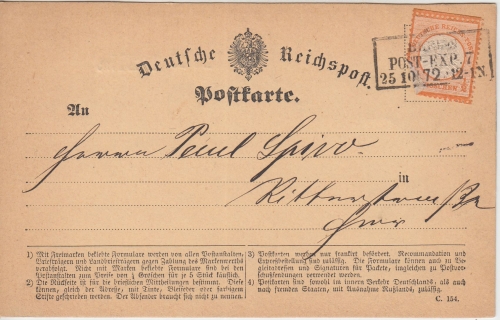 Deutsche Reichspost.
Postkarte.
POST-EXP. 7
25 10 72 12-1N.
An
Herrn Paul Spiro
in
Ritterstraße
hier
1) Mit Freimarken beklebte Formulare werden von allen Postanstalten, Briefträgern und Landbriefträgern gegen Zahlung des Markenwerthes verabfolgt. Nicht mit Marken beklebte Formulare sind bei den Postanstalten zum Preise von ¼ Groschen für je 5 Stück käuflich.
2) Die Rückseite ist für die brieflichen Mittheilungen bestimmt. Diese können, gleich der Adresse, mit Tinte, Bleifeder oder farbigem Stifte geschrieben werden. Der Absender braucht sich nicht zu nennen.
3) Postkarten werden nur frankirt befördert. Recommandation und Expreßbestellung sind zulässig. Die Formulare können auch zu Begleitadressen und Signaturen für Packete, ingleichen zu Postvorschußsendungen verwendet werden.
4) Postkarten sind sowohl im innern Verkehr Deutschlands, als auch nach fremden Staaten, mit Ausnahme Rußlands, zulässig.
C. 154.